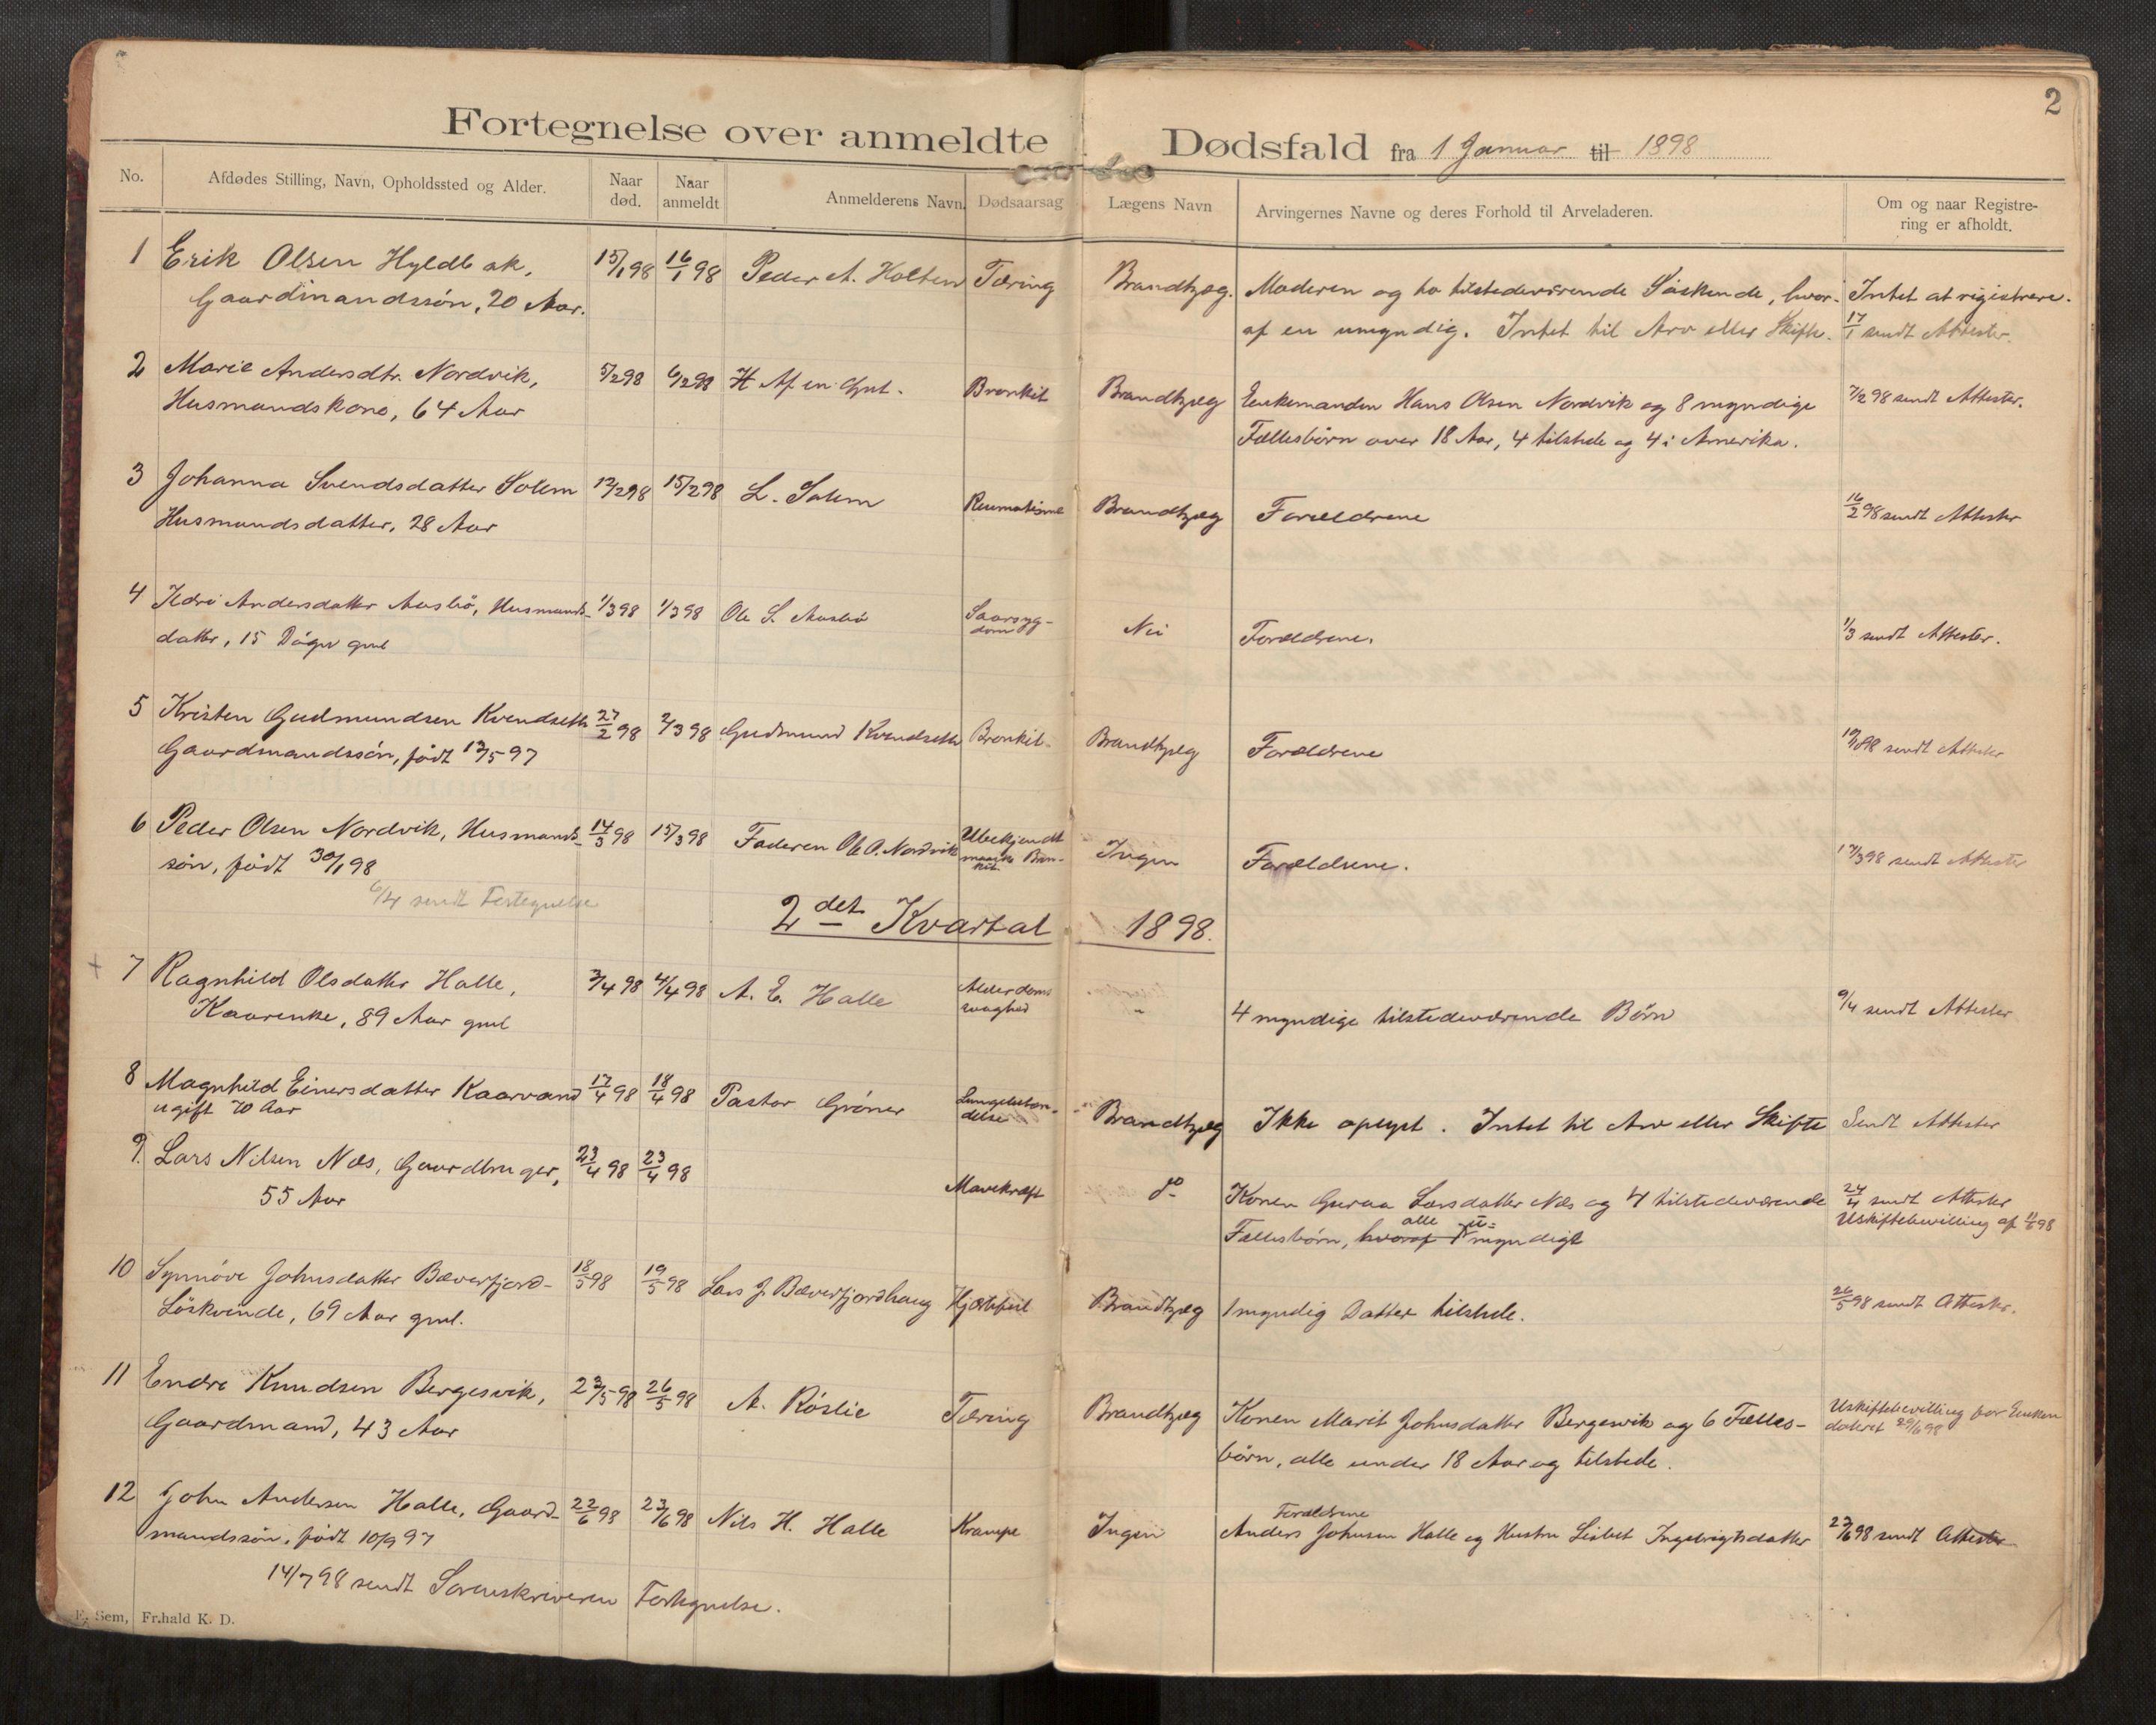 2
Fortegnelse over anmeldte Dødsfald fra 1 Januar til 1898
No. Afdødes Stilling, Navn, Opholdssted og Alder. Naar død. Naar anmeldt Anmelderens Navn. Dødsaarsag Lægens Navn Arvingernes Navne og deres Forhold til Arveladeren. Om og naar Registre-
ring er afholdt.
1 Erik Olsen Hyldbak, 15/1 98 16/1 98 Peder A. Holten Tæring Brandtzæg. Moderen og to tilstedeværende Søskende, hvor- Intet at registrere.
Gaardmandssøn, 20 Aar. af en umyndig. Intet til Arv eller Skifte. 17/1 sendt Attester.
2 Marie Andersdtr. Nordvik, 5/2 98 6/2 98 Bronkit Brandtzæg Enkemanden Hans Olsen Nordvik og 8 myndige 7/2 98 sendt Attester.
Husmandskone, 64 Aar Fællesbörn over 18 Aar, 4 tilstede og 4 i Amerika.
3 Johanna Svendsdatter Solem 12/2 98 15/2 98 L. Solem Reumatisme Brandtzæg Forældrene 16/2 98 sendt Attester
Husmandsdatter, 28 Aar
4 Andersdatter Aasbö, Husmands- 1/3 98 1/3 98 Ole S. Aasbö Saarsyg-
dom Nei Forældrene. 1/3 sendt Attester.
datter, 15 Døgn gml
5 Kristen Gudmundsen Kvendseth 27/2 98 2/3 98 Gudmund Kvendseth Bronkit Brandtzæg Forældrene sendt Attester
Gaardmandssön, född 12/5 97
6 Peder Olsen Nordvik, Husmands- 14/3 98 15/3 98 Faderen Ole O. Nordvik Ubekjendt
maaske Bron-
kit Ingen Forældrene. 17/3 98 sendt Attester
sön, född 30/1 98
6/4 sendt Fortegnelse
2det Kvartal 1898.
+ 7 Ragnhild Olsdatter Halle, 3/4 98 4/4 98 A. E. Halle Alderdoms
svaghed " 4 myndige tilstedeværende Börn 9/4 sendt Attester
Kaarenke, 89 Aar gml
8 Magnhild Einersdatter Kaarvand 17/4 98 18/4 98 Pastor Gröner Lungebetæn-
delse Brandtzæg Ikke oplyst. Intet til Arv eller Skifte Sendt Attester
ugift 70 Aar
9. Lars Nilsen Næs, Gaardbruger, 23/4 98 23/4 98 Mavekræft do Konen Guraa Larsdatter Næs og 4 tilstedeværende 24/4 sendt Attester
55 Aar Fællesbörn, hvoraf alle u- myndige Uskiftebevilling af 11/6 98
10 Synnöve Johnsdatter Bæverfjord- 18/5 98 19/5 98 Lars J. Bæverfjordhaug Hjertefeil Brandtzæg 1 myndig Datter tilstede. 26/5 98 sendt Attester.
Löskvinde, 69 Aar gml.
11 Endre Knudsen Bergesvik, 23/5 98 26/5 98 A. Röslie Tæring Brandtzæg Konen Marit Johnsdatter Bergesvik og 6 Fælles- Uskiftebevilling for Enken
Gaardmand, 43 Aar börn, alle under 18 Aar og tilstede. dateret 29/6 98
12 John Andersen Halle, Gaard- 22/6 98 23/6 98 Nils H. Halle Krampe Ingen Forældrene
Anders Johnsen Halle og Hustru Lisbet Ingebrigtsdatter 27/6 98 sendt Attester
mandssön, född 10/9 97
14/7 98 sendt Sorenskriveren Fortegnelse.
E. Sem, Fr.hald K. D.